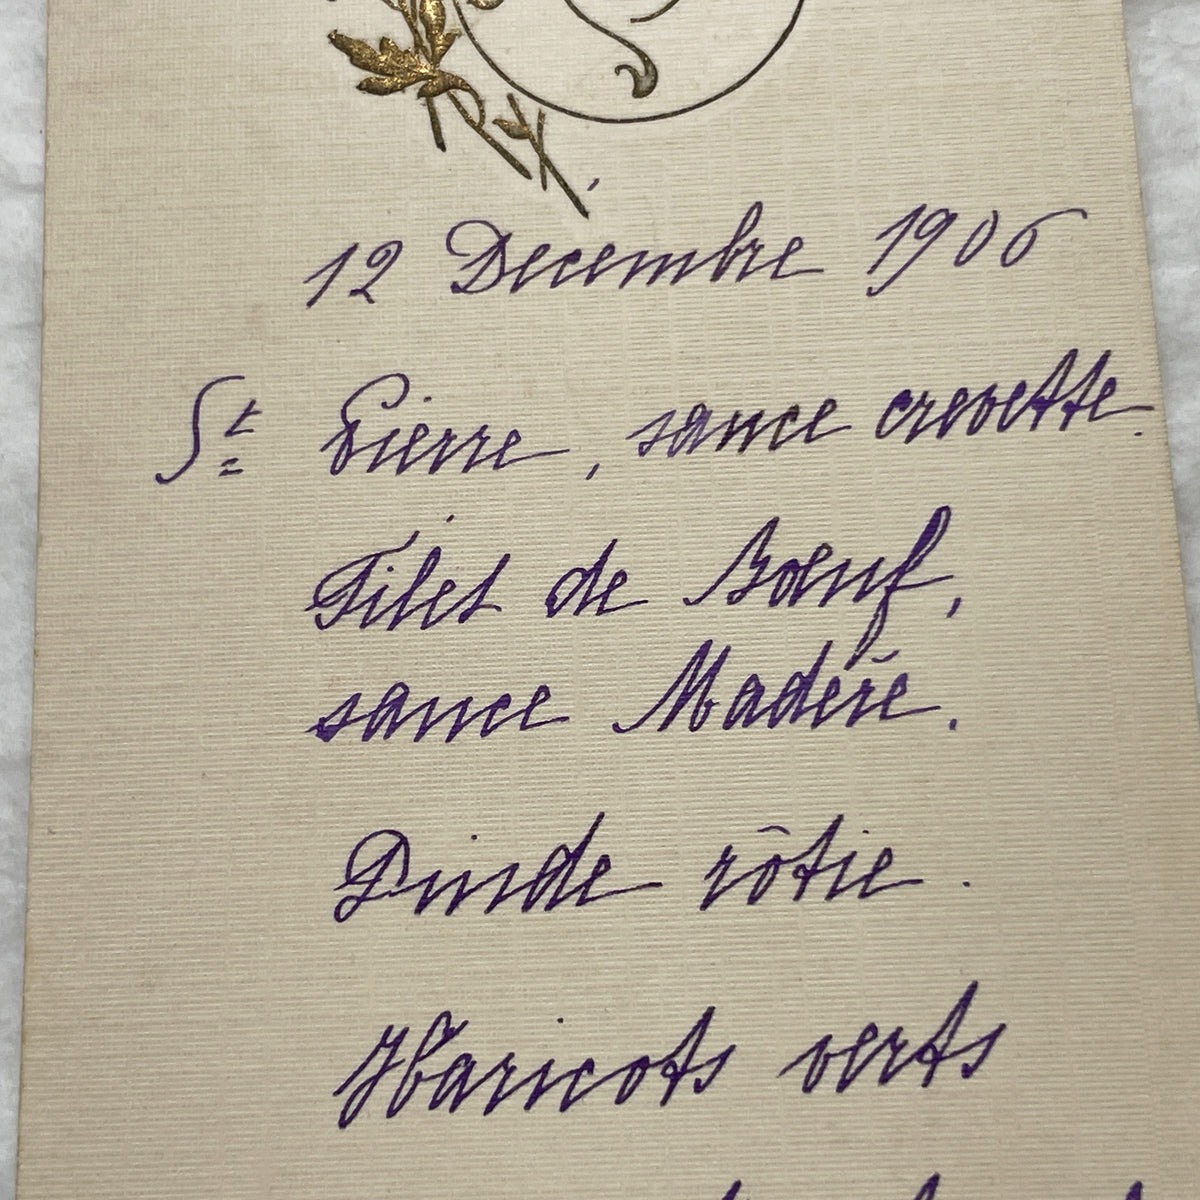 12 Décembre 1906
St Pierre, sauce crevette.
Filet de Bœuf,
sauce Madère.
Dinde rôtie.
Haricots verts